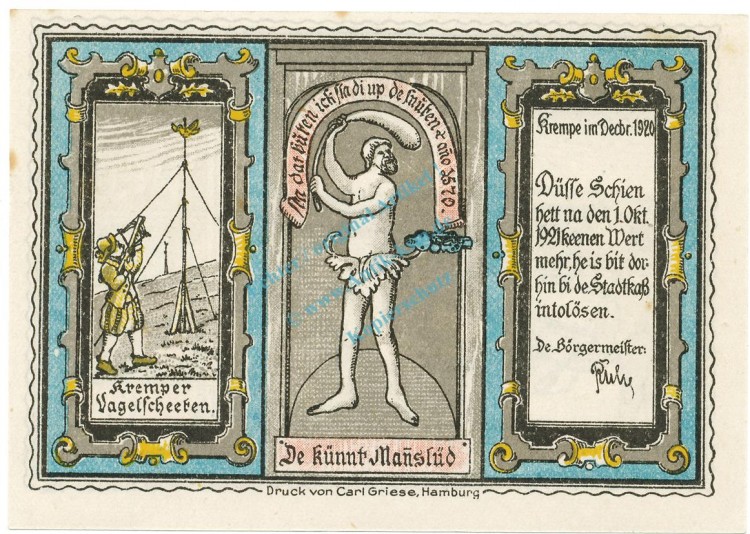 Kremper
Vagelscheeten.
An dat büten ick sla di up de snuten ✣ año 1570.
De künnt Mañslüd
Krempe im Decbr. 1920
Düsse Schien
hett na den 1. Okt.
1921 keenen Wert
mehr, he is bit dor-
hin bi de Stadtkaß
intolösen.
De Börgermeister:
Druck von Carl Griese, Hamburg